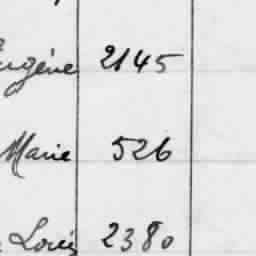 Eugène 2145
Marie 526
Louis 2380